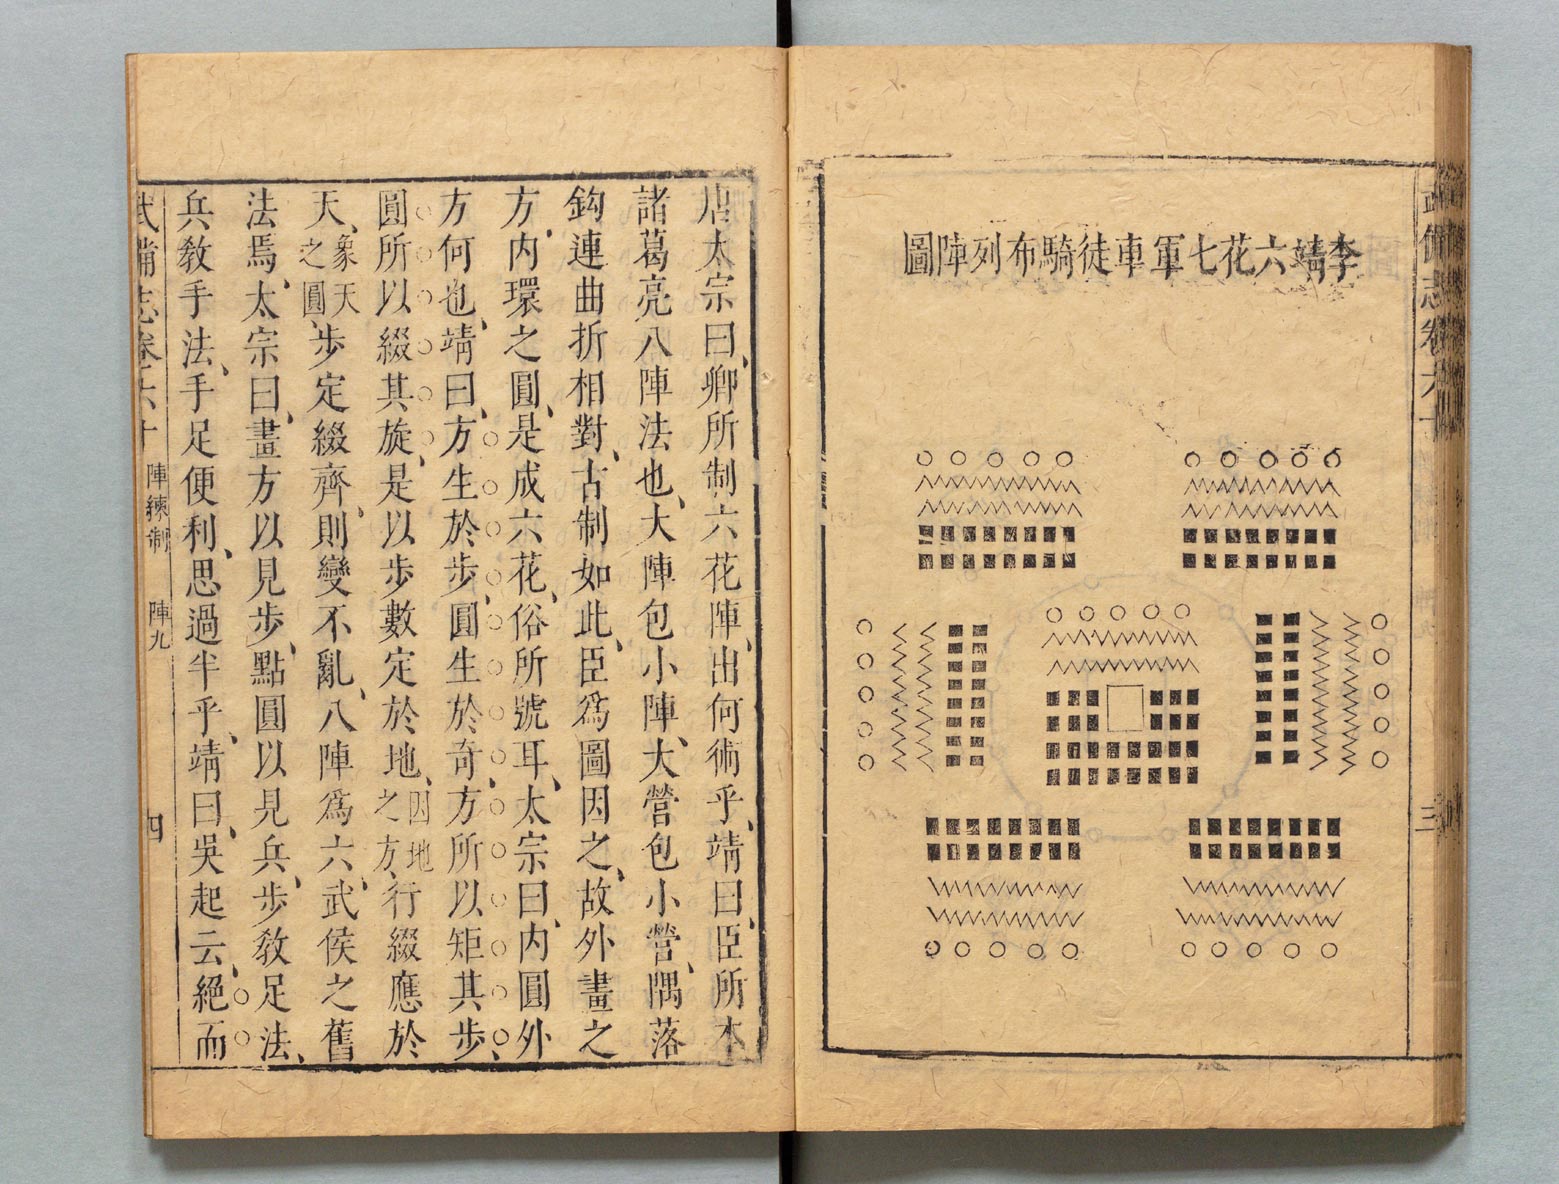 李靖六花七軍車徒騎布列陣圖
武備志卷六十
三
唐太宗曰、卿所制六花陣、出何術乎、靖曰、臣所本
諸葛亮八陣法也、大陣包小陣、大營包小營、隅落
鈎連曲折相對、古制如此、臣爲圖因之、故外畫之
方、内環之圓、是成六花、俗所號耳、太宗曰、内圓外
方何也、靖曰、方生於步、圓生於奇、方所以矩其步、
圓所以綴其旋、是以步數定於地、因地之方、行綴應於
天、象天之圓、步定綴齊、則變不亂、八陣爲六、武侯之舊
法焉、太宗曰、畫方以見步、點圓以見兵、步敎足法、
兵敎手法、手足便利、思過半乎、靖曰、吳起云、絕而
武備志卷六十 陣練制 陣九 四